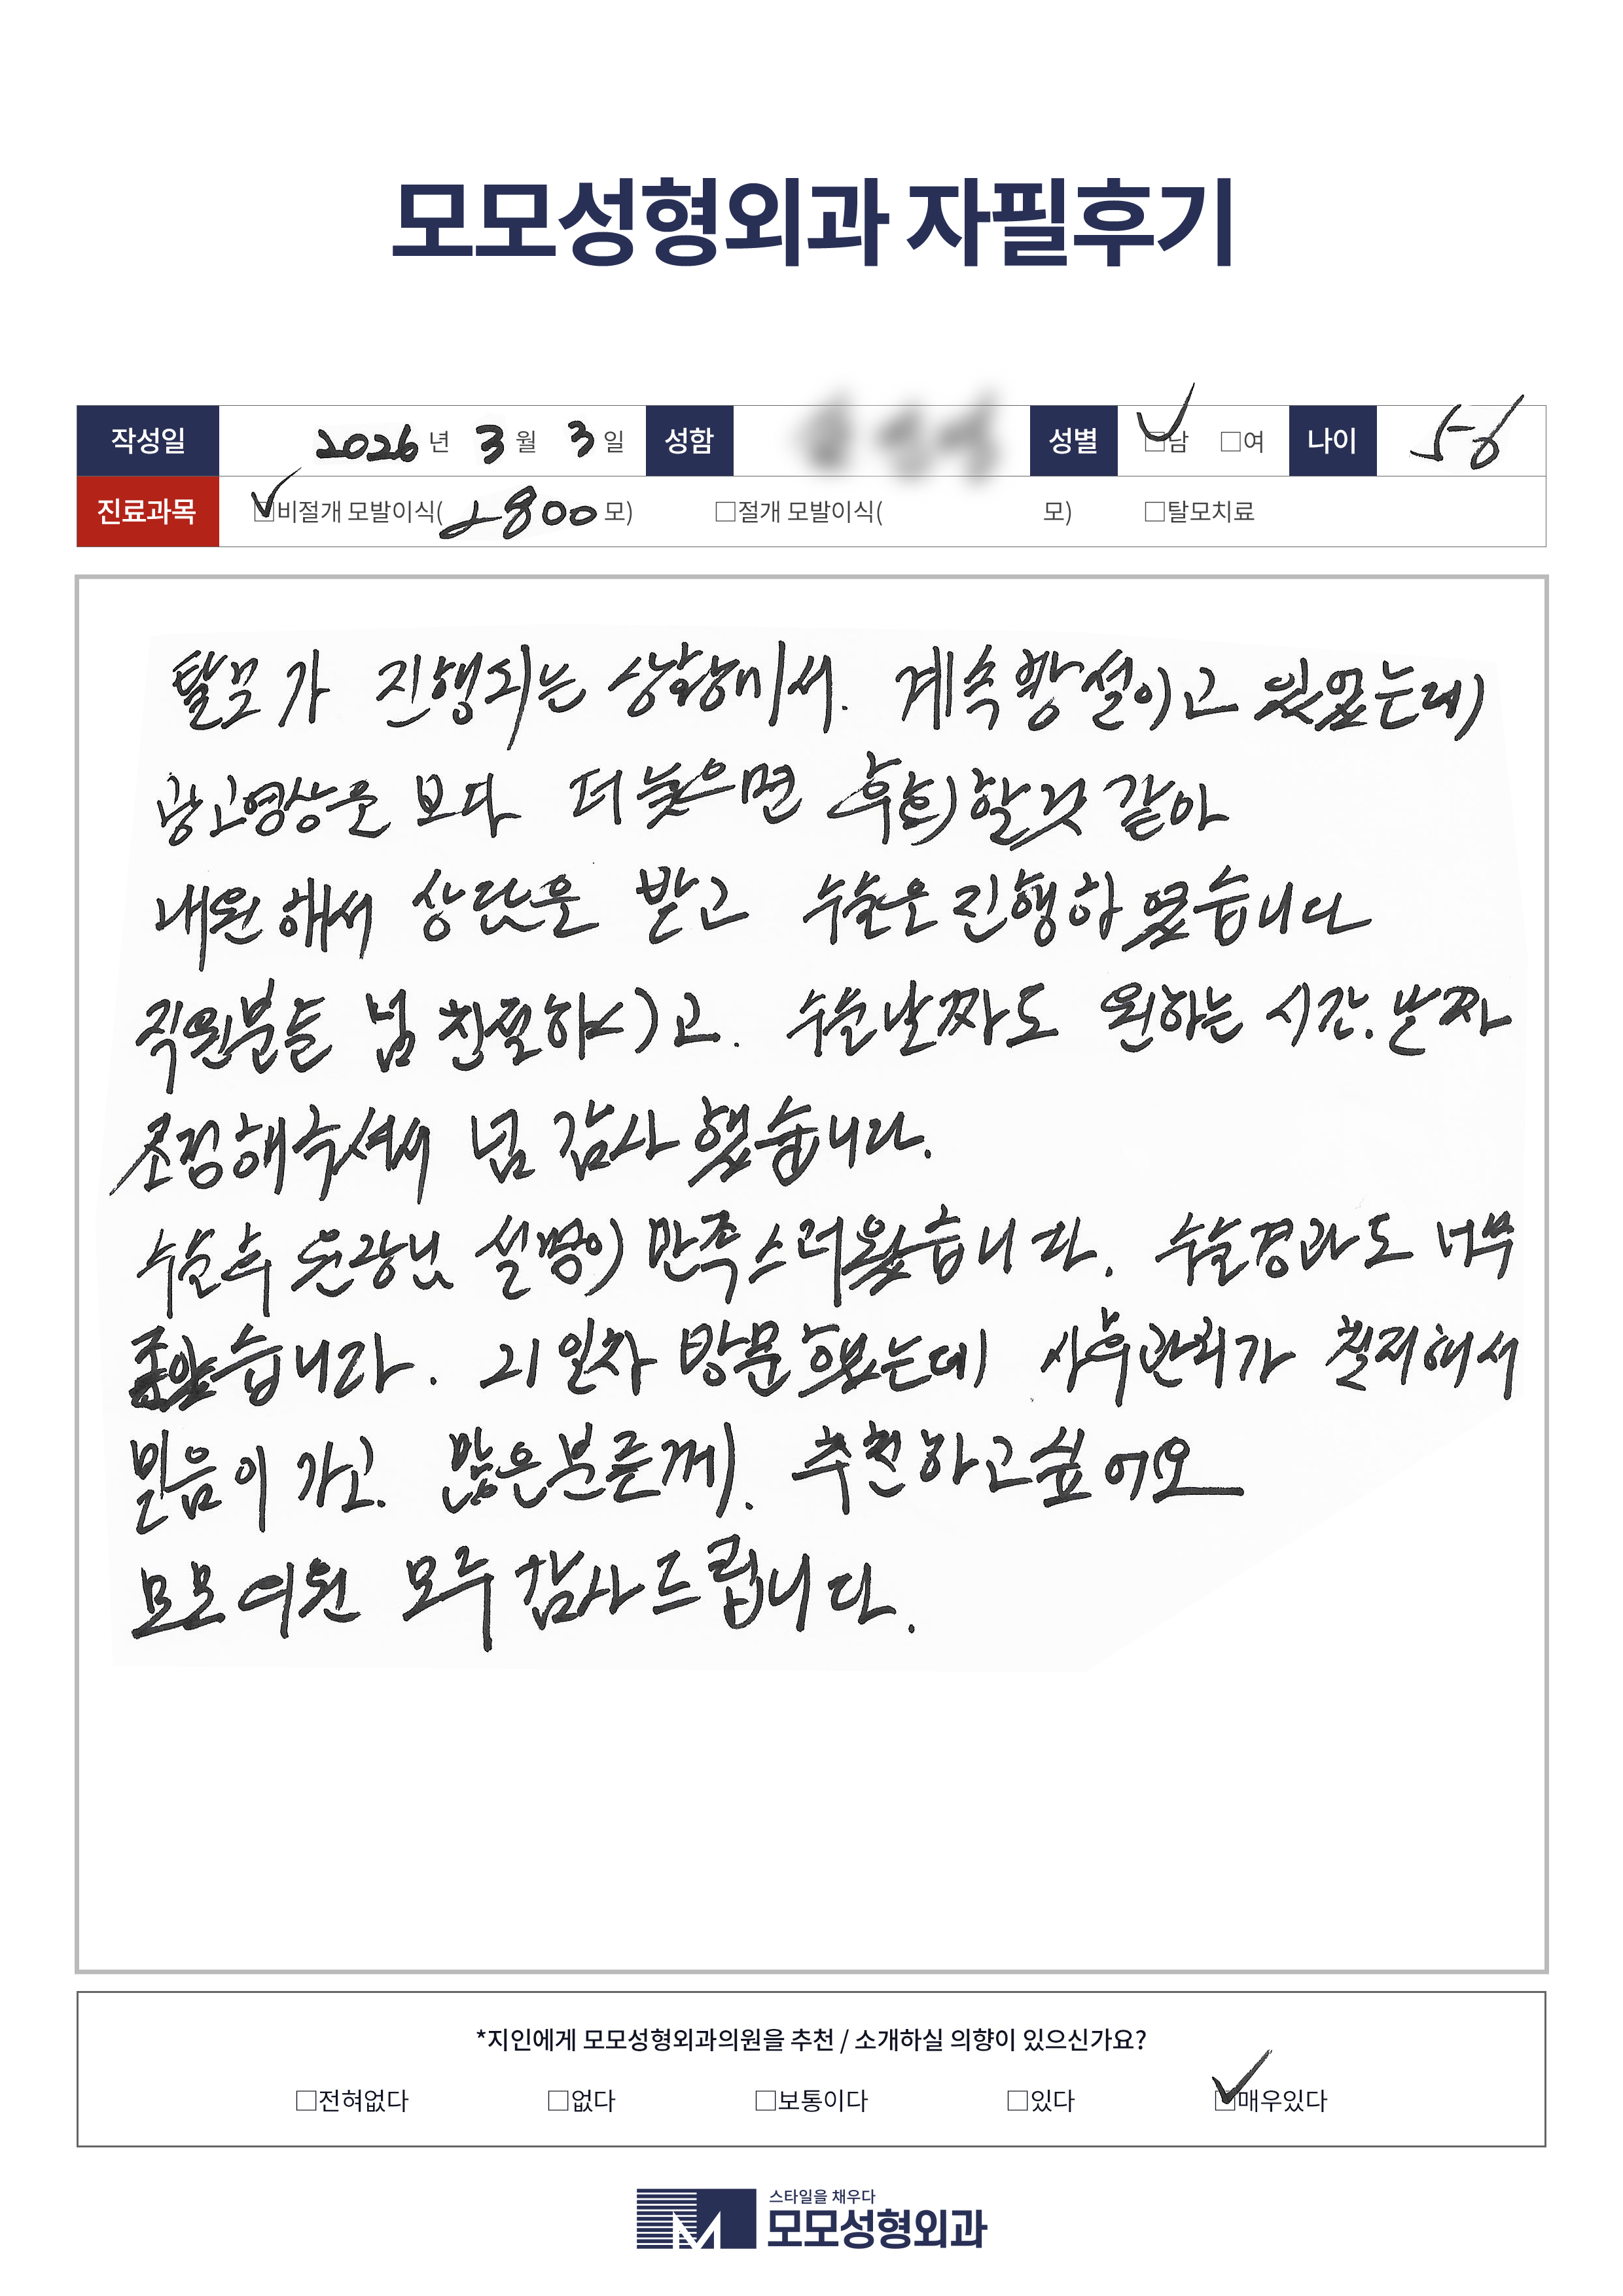 모모성형외과 자필후기
작성일 2026 년 3 월 3 일 성함 성별 ☑남 □여 나이 56
진료과목 ☑비절개 모발이식( 2800 모) □절개 모발이식( 모) □탈모치료
탈모가 진행되는 상황에서. 계속 망설이고 있었는데
광고영상을 보다 더 늦으면 후회할것 같아
내원해서 상담을 받고 수술은 진행하였습니다
직원분들 넘 친절하시고. 수술날짜도 원하는 시간. 날짜
조정해주셔서 넘 감사했습니다.
수술후 원장님 설명이 만족스러웠습니다. 수술경과도 너무
좋았습니다. 21일차 방문했는데 사후관리가 철저해서
믿음이 가고. 많은분들께. 추천하고싶어요
모모의원 모두 감사드립니다.
*지인에게 모모성형외과의원을 추천 / 소개하실 의향이 있으신가요?
□전혀없다 □없다 □보통이다 □있다 ☑매우있다
스타일을 채우다
모모성형외과